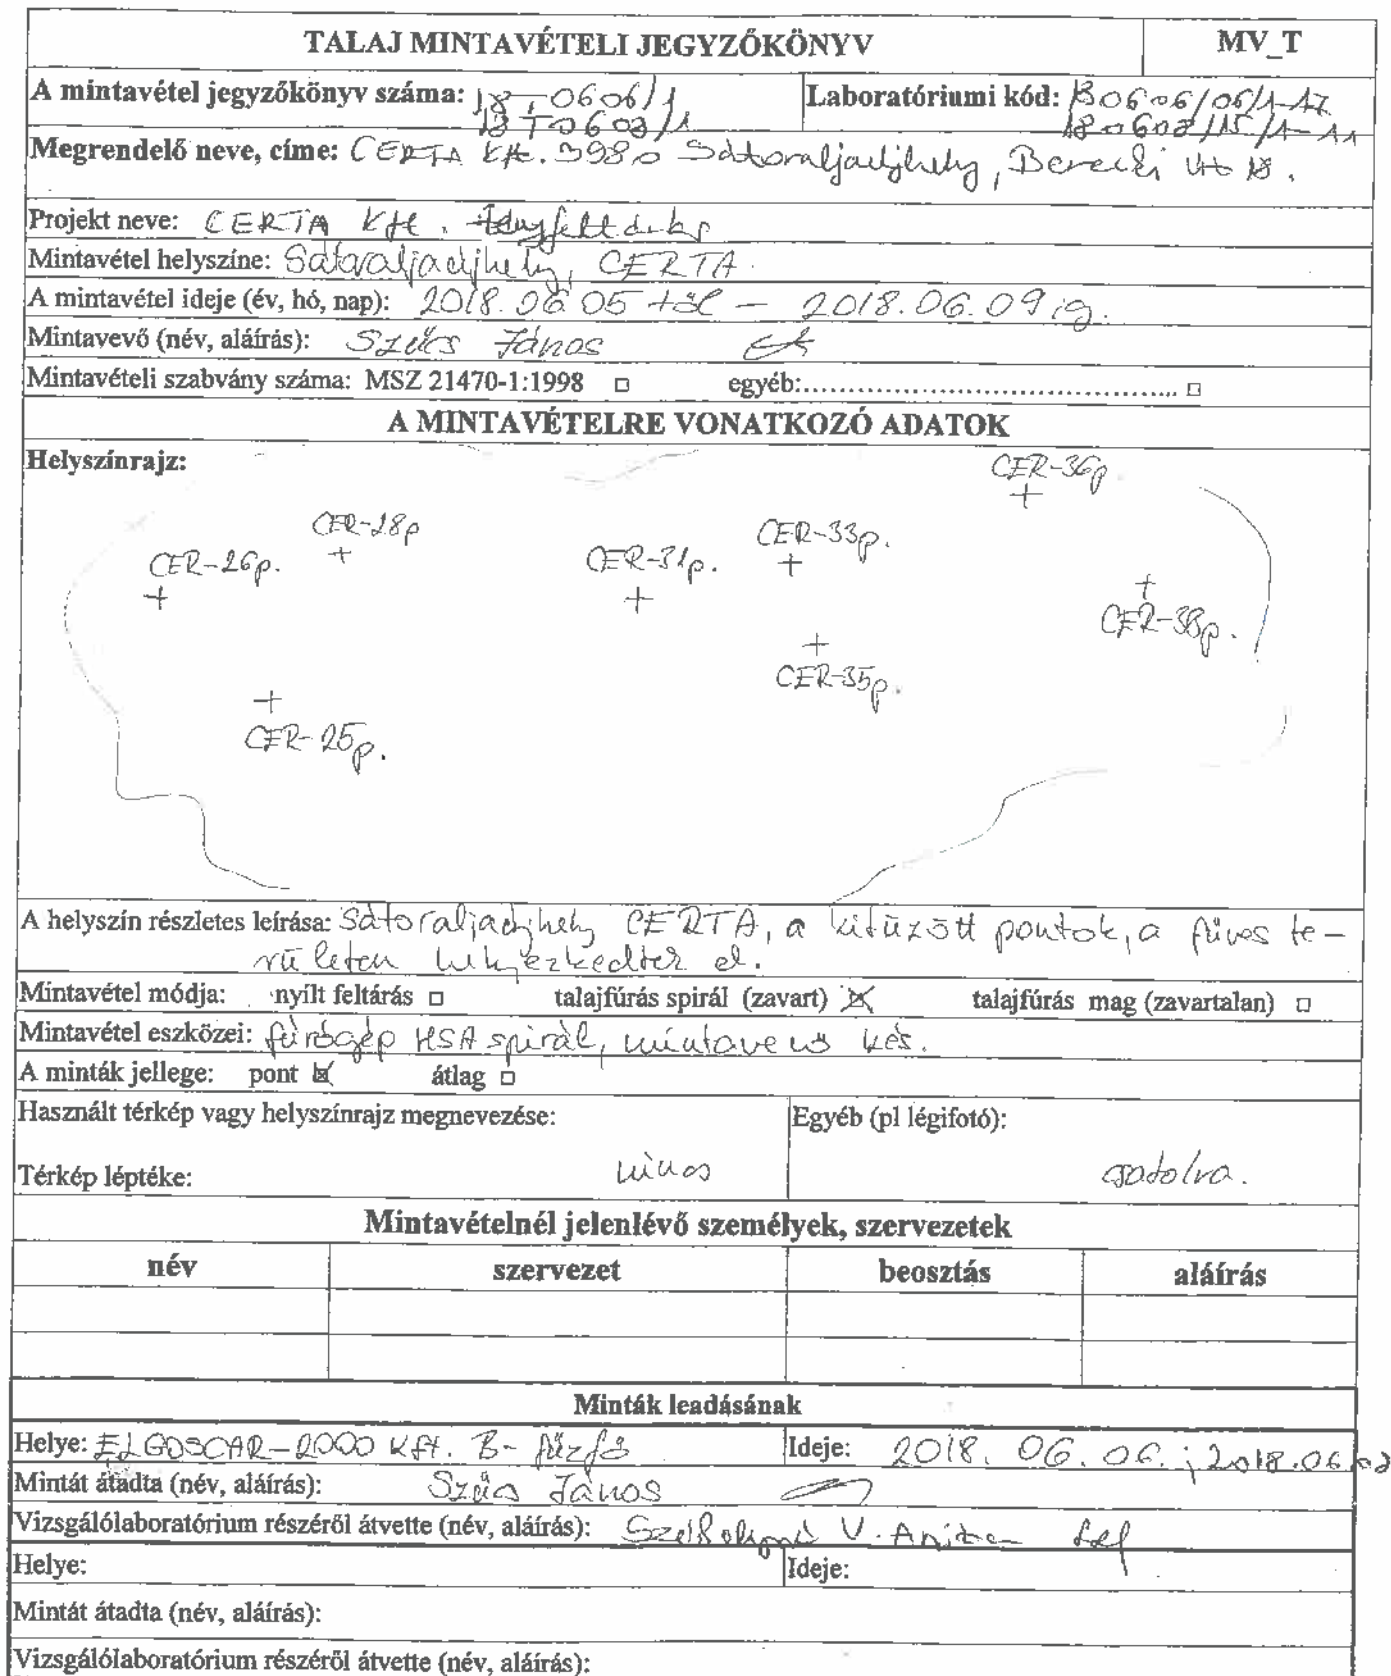 TALAJ MINTAVÉTELI JEGYZŐKÖNYV MV_T
A mintavétel jegyzőkönyv száma: 18T0606/1 Laboratóriumi kód: 180606/06/1-17
18T0608/1 180608/15/1-11
Megrendelő neve, címe: CERTA Kft. 3980 Sátoraljaújhely, Berecki út 18.
Projekt neve: CERTA Kft. Tényfeltárás
Mintavétel helyszíne: Sátoraljaújhely, CERTA.
A mintavétel ideje (év, hó, nap): 2018.06.05 től - 2018.06.09 ig.
Mintavevő (név, aláírás): Szűcs János
Mintavételi szabvány száma: MSZ 21470-1:1998 □ egyéb:........................................... □
A MINTAVÉTELRE VONATKOZÓ ADATOK
Helyszínrajz:
CER-36p
CER-28p
CER-33p.
CER-26p.
CER-31p.
CER-38p.
CER-35p.
CER-25p.
A helyszín részletes leírása: Sátoraljaújhely CERTA, a kitűzött pontok, a füves te-
rületen helyezkedtek el.
Mintavétel módja: nyílt feltárás □ talajfúrás spirál (zavart) ☒ talajfúrás mag (zavartalan) □
Mintavétel eszközei: fúrógép HSA spirál, mintavevő kés.
A minták jellege: pont ☒ átlag □
Használt térkép vagy helyszínrajz megnevezése: Egyéb (pl légifotó):
Térkép léptéke: nincs csatolva.
Mintavételnél jelenlévő személyek, szervezetek
név szervezet beosztás aláírás
Minták leadásának
Helye: ELGOSCAR-2000 Kft. B-fűzfő Ideje: 2018. 06. 06.; 2018.06.08
Mintát átadta (név, aláírás): Szűcs János
Vizsgálólaboratórium részéről átvette (név, aláírás): V. Anita
Helye: Ideje:
Mintát átadta (név, aláírás):
Vizsgálólaboratórium részéről átvette (név, aláírás):